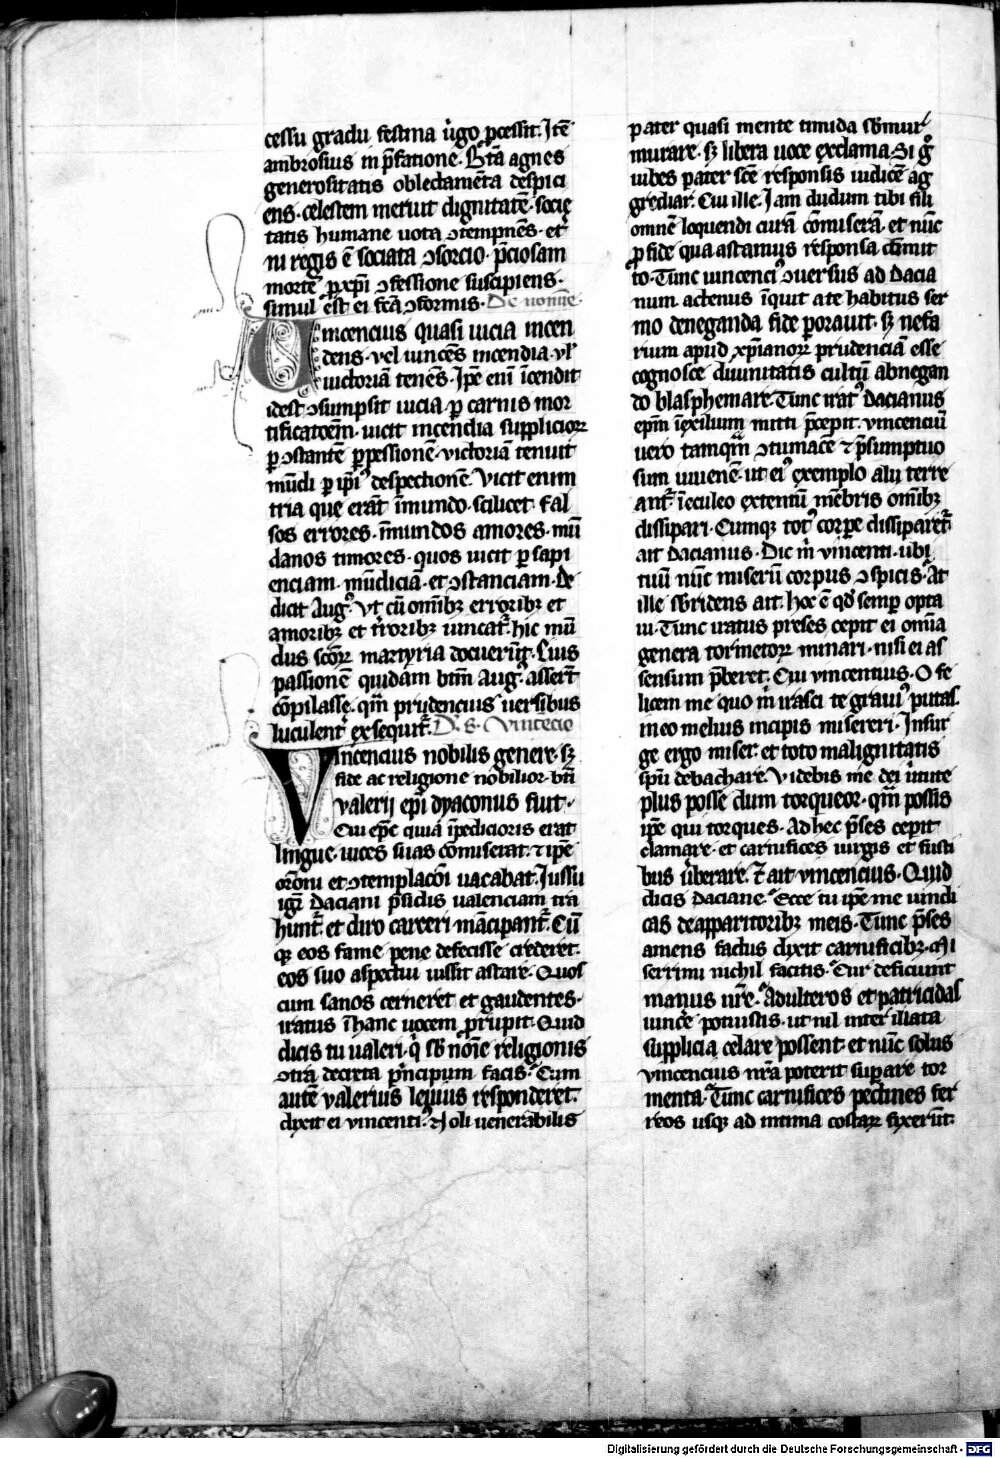 cessu gradu festina ũgo p̃cessit. Itẽ
ambrosius in p̃fatione. Bt̃a agnes
generositatis oblectamẽta despici
ens. celestem meruit dignitatẽ. socię
tatis humane uota ↄtempnẽs. et̾
ni regis ẽ sociata ↄsorcio. p̃ciosam
mortẽ ꝓ xp̃i ↄfessione suscipiens.
simul est ei fc̃a ↄformis. De nomine
Uincencius quasi uicia incen
dens. vel uincẽs incendia. ul̾
uictoriã tenẽs. Ip̃e eni᷑ ĩcendit
idest ↄsumpsit uicia. ꝑ carnis mor
tificatoẽm. uicit incendia supplicioꝝ
ꝑ ↄstantẽ ꝑpessionẽ. victoriã tenuit
mũdi ꝑ ip̃i᷒ despectionẽ. Vicit enim
tria quę erãt ĩ mundo. scilicet. fal
sos errores. ĩmundos amores. mũ
danos timores. quos uicit ꝑ sapi
enciam. mũdiciã. et ↄstanciam. De
dicit Aug᷒. Vt cũ om̃ibꝫ erroribꝫ et
amoribꝫ et t̾roribꝫ uincat᷑. hic mũ
dus sc̃oꝝ martyria docuerũt. Eius
passionẽ quidam btm̃ Aug᷒. assert̾
cõpilasse. qm̃ prudencius uersibus
luculent̾ exsequit᷑. D. s. Vincẽcio
Vincencius nobilis genere. sꝫ
fide ac religione nobilior. bt̃i
valerij ep̃i dyaconus fuit.
Cui ep̃c quia ĩpedicioris erat
lingue. uices suas cõmiserat. ⁊ ip̃e
or̃oni et ↄtemplac̃oi uacabat. Jussu
igr̃ daciani p̃sidis ualenciam tra
hunt᷑. et diro carceri mãcipant᷑. Cũ
qꝫ eos fame pene defecisse crederet.
eos suo aspectui iussit astare. Quos
cum sanos cerneret et gaudentes.
iratus ĩ hanc uocem ꝓrupit. Quid
dicis tu ualeri. q̾ sb̾ nõie religionis
ↄtra decreta p̾ncipum facis. Cum
autẽ valerius leuius responderet.
dixit ei vincenti᷒. Noli uenerabilis
pater quasi mente timida sb̾mur
murare. sꝫ libera uoce exclama. Si g̾
iubes pater sc̃e responsis iudicẽ ag
grediar. Cui ille. Jam dudum tibi fili
omnẽ loquendi curã cõmiserã. et nũc
ꝓ fide qua astamus responsa cõmit
to. Tunc uincenci᷒ ↄuersus ad dacia
num. actenus ĩquit a te habitus ser
mo deneganda fide ꝑorauit. sꝫ nefa
rium apud xp̃ianoꝝ prudenciã esse
cognosce diuinitatis cultũ abnegan
do blasphemare. Tunc irat᷒ dacianus
ep̃m ĩ exilium mitti p̃cepit. vincenciũ
uero tamqm̃ ↄtumacẽ ⁊ p̃sumptuo
sum iuuenẽ. ut ei᷒ exemplo alij terre
ant᷑. ĩ eculeo extentũ mẽbris om̃ibꝫ
dissipari. Cumqꝫ tot᷒ corpe dissiparet᷑
ait dacianus. Dic m̾ vincenti. ubi
tuũ nũc miserũ corpus ↄspicis. At
ille sb̾ridens ait. hoc ẽ qd̾ semp̱ opta
ui. Tunc iratus preses cepit ei om̃ia
genera tormetoꝝ minari. nisi ei as
sensum p̃beret. Cui vincentius. O fe
licem me quo m̾ irasci te graui᷒ putas.
in eo melius incipis misereri. Insur
ge ergo miser. et toto malignitatis
sp̃u debachare. Videbis me dei ũtute
plus posse dum torqueor. qm̃ possis
ip̃e qui torques. Ad hec p̃ses cepit
clamare. et carnifices uirgis et fusti
bus ũberare. ⁊ ait vincencius. Quid
dicis daciane. Ecce tu ipẽ me uindi
cas de apparitoribꝫ meis. Tunc p̃ses
amens factus dixit carnificibꝫ. Mi
serrimi nichil facitis. Cur deficiunt
manus ur̃e. Adulteros et patricidas
uinc̾e potuistis. ut nil inter illata
supplicia celare possent. et nũc solus
vincencius nr̃a poterit supare tor
menta. Tunc carnifices pectines fer
reos usqꝫ ad intima costaꝝ fixerũt.
Digitalisierung gefördert durch die Deutsche Forschungsgemeinschaft - DFG